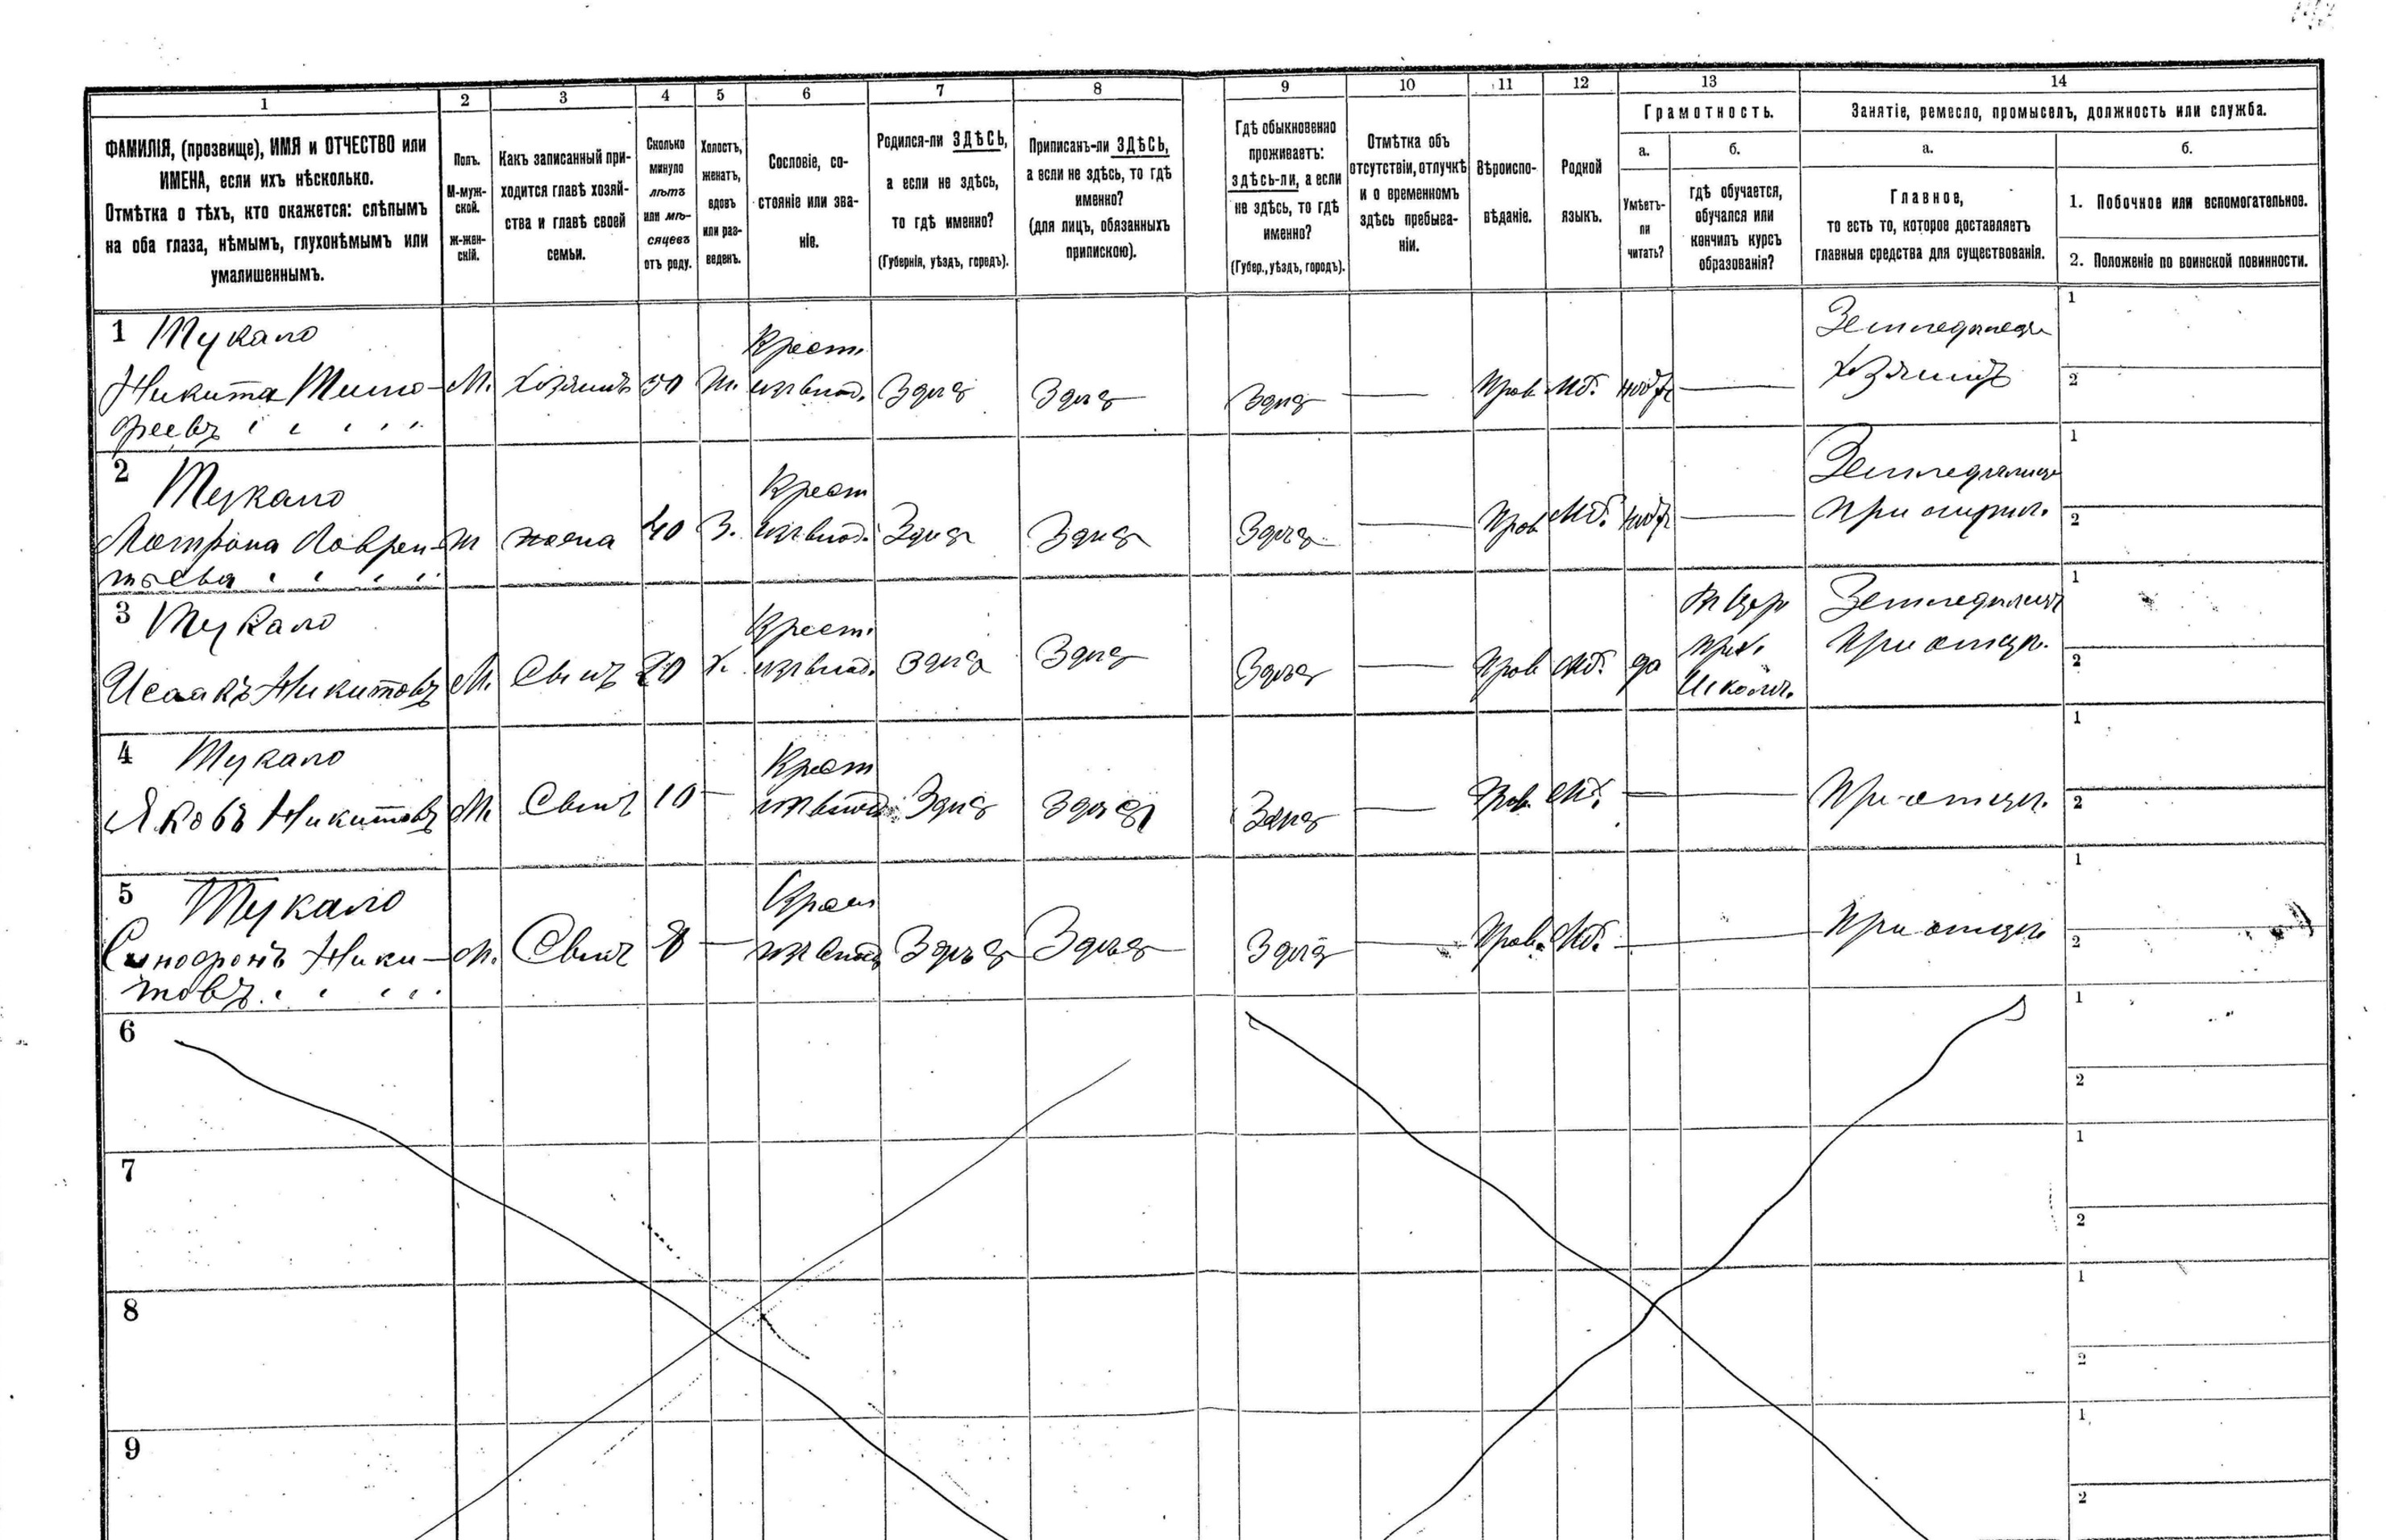 1 2 3 4 5 6 7 8 9 10 11 12 13 14
ФАМИЛІЯ, (прозвище), ИМЯ и ОТЧЕСТВО или
ИМЕНА, если ихъ нѣсколько.
Отмѣтка о тѣхъ, кто окажется: слѣпымъ
на оба глаза, нѣмымъ, глухонѣмымъ или
умалишеннымъ.
Полъ.
М-муж-
ской.
Ж-жен-
скій.
Какъ записанный при-
ходится главѣ хозяй-
ства и главѣ своей
семьи.
Сколько
минуло
лѣтъ
или мѣ-
сяцевъ
отъ роду.
Холостъ,
женатъ,
вдовъ
или раз-
веденъ.
Сословіе, со-
стояніе или зва-
ніе.
Родился-ли ЗДѢСЬ,
а если не здѣсь,
то гдѣ именно?
(Губернія, уѣздъ, городъ).
Приписанъ-ли ЗДѢСЬ,
а если не здѣсь, то гдѣ
именно?
(для лицъ, обязанныхъ
припискою).
Гдѣ обыкновенно
проживаетъ:
здѣсь-ли, а если
не здѣсь, то гдѣ
именно?
(Губер., уѣздъ, городъ).
Отмѣтка объ
отсутствіи, отлучкѣ
и о временномъ
здѣсь пребыва-
ніи.
Вѣроиспо-
вѣданіе.
Родной
языкъ.
Грамотность.
а.
Умѣетъ-
ли
читать?
б.
гдѣ обучается,
обучался или
кончилъ курсъ
образованія?
Занятіе, ремесло, промыселъ, должность или служба.
а.
Главное,
то есть то, которое доставляетъ
главныя средства для существованія.
б.
1. Побочное или вспомогательное.
2. Положеніе по воинской повинности.
1 Тукало
Никита Тимо-
феевъ
М. хозяинъ 50 Крест. Здѣсь Здѣсь Здѣсь — Прав —
хозяинъ
1
2
2 Тукало
Матрона Лаврен-
тьева
жена 40 З. Крест Здѣсь Здѣсь Здѣсь — Прав —
1
2
3 Тукало
Исаакъ Никитовъ
М. Сынъ 20 Х. Крест. Здѣсь Здѣсь Здѣсь — Прав да
при отцѣ.
1
2
4 Тукало
Яковъ Никитовъ
М Сынъ 10 — Крест Здѣсь Здѣсь Здѣсь — Прав. —
При отцѣ.
1
2
5 Тукало
Ники-
товъ
М. Сынъ 8 — Крест Здѣсь Здѣсь Здѣсь — Прав. —
При отцѣ
1
2
6
1
2
7
1
2
8
1
2
9
1
2